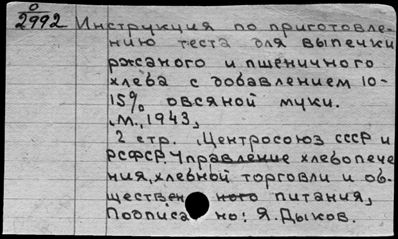 О
2992
Инструкция по приготовле-
нию теста для выпечки
ржаного и пшеничного
хлеба с добавлением 10-
15% овсяной муки.
М., 1943,
2 стр. Центросоюз СССР и
РСФСР. Управление хлебопече
ния, хлебной торговли и об-
ществен ного питания,
Подписа но: Я. Дыков.